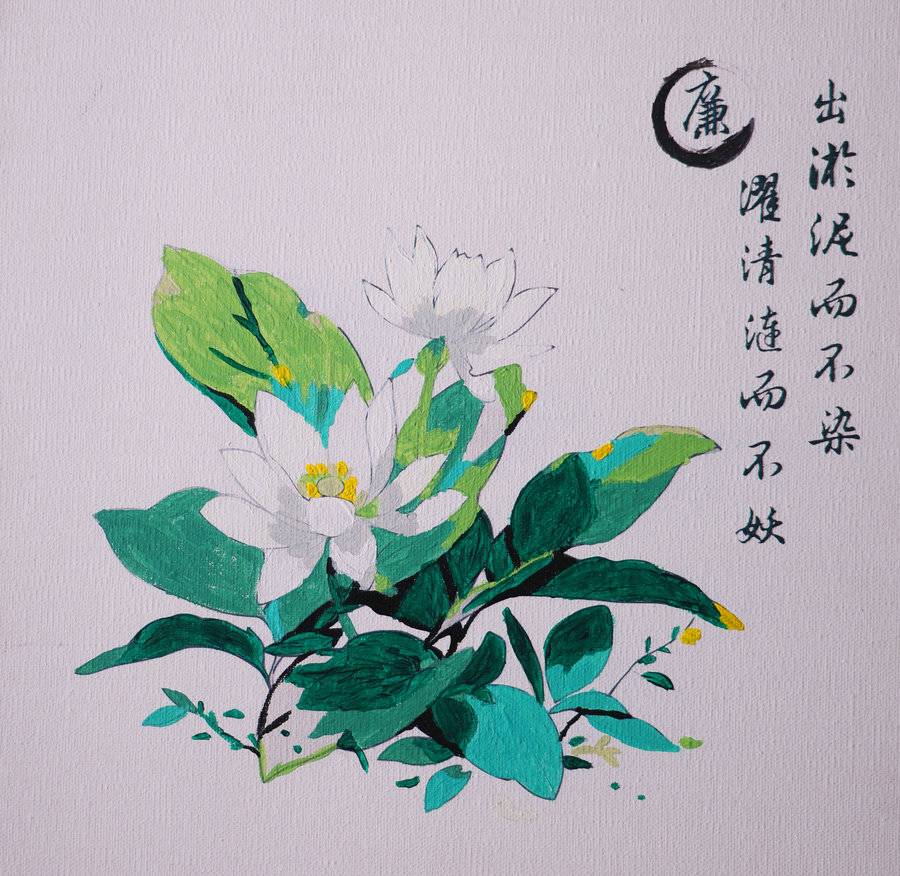 出淤泥而不染
濯清涟而不妖
廉